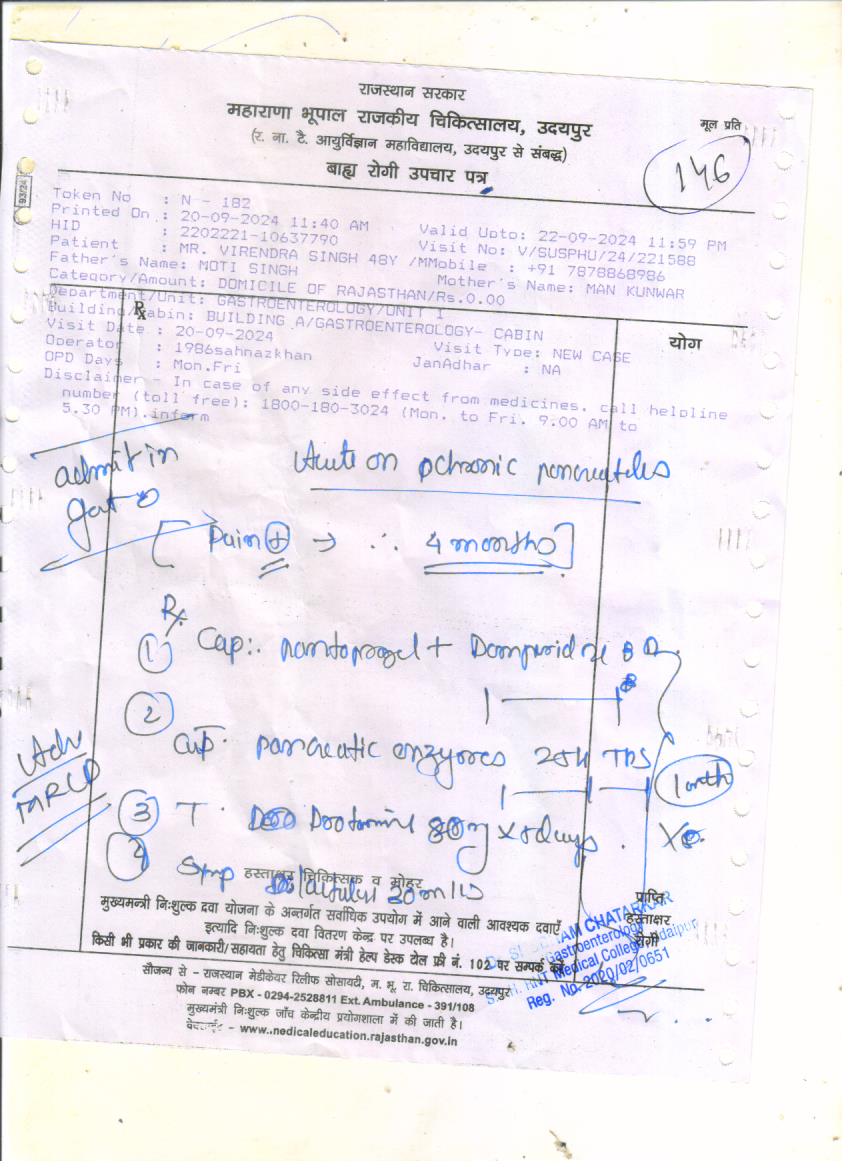 राजस्थान सरकार
महाराणा भूपाल राजकीय चिकित्सालय, उदयपुर
मूल प्रति
(र. ना. टै. आयुर्विज्ञान महाविद्यालय, उदयपुर से संबद्ध)
146
बाह्य रोगी उपचार पत्र
93/24
Token No : N - 182
Printed On : 20-09-2024 11:40 AM Valid Upto: 22-09-2024 11:59 PM
HID : 2202221-10637790 Visit No: V/SUSPHU/24/221588
Patient : MR. VIRENDRA SINGH 48Y /MMobile : +91 7878868986
Father's Name: MOTI SINGH Mother's Name: MAN KUNWAR
Category/Amount: DOMICILE OF RAJASTHAN/Rs.0.00
Department/Unit: GASTROENTEROLOGY/UNIT I
Building/Cabin: BUILDING A/GASTROENTEROLOGY- CABIN
Rx
योग
Visit Date : 20-09-2024 Visit Type: NEW CASE
Operator : 1986sahnazkhan JanAadhar : NA
OPD Days : Mon.Fri
Disclaimer - In case of any side effect from medicines, call helpline
number (toll free): 1800-180-3024 (Mon. to Fri. 9.00 AM to
5.30 PM).inform
admit in
Acute on chronic pancreatitis
[ Pain + → ∴ 4 months ]
Rx
① Cap:. pantoprazol + Domperidone BD
②
Cap. pancreatic enzymes 25k TDS
Adv
MRCP
③ T. Drotamine 80mg x 8 days.
④ Syrup
हस्ताक्षर चिकित्सक व मोहर
20 ml
मुख्यमन्त्री निःशुल्क दवा योजना के अन्तर्गत सर्वाधिक उपयोग में आने वाली आवश्यक दवाएँ
इत्यादि निःशुल्क दवा वितरण केन्द्र पर उपलब्ध है।
प्राप्ति
हस्ताक्षर
रोगी
किसी भी प्रकार की जानकारी/सहायता हेतु चिकित्सा मंत्री हेल्प डेस्क टोल फ्री नं. 102 पर सम्पर्क करें
CHATARKAR
Gastroenterology
RNT Medical College Udaipur
Reg. No. 2020/02/0651
सौजन्य से - राजस्थान मेडीकेयर रिलीफ सोसायटी, म. भू. रा. चिकित्सालय, उदयपुर
फोन नम्बर PBX - 0294-2528811 Ext. Ambulance - 391/108
मुख्यमंत्री निःशुल्क जाँच केन्द्रीय प्रयोगशाला में की जाती है।
- www.medicaleducation.rajasthan.gov.in